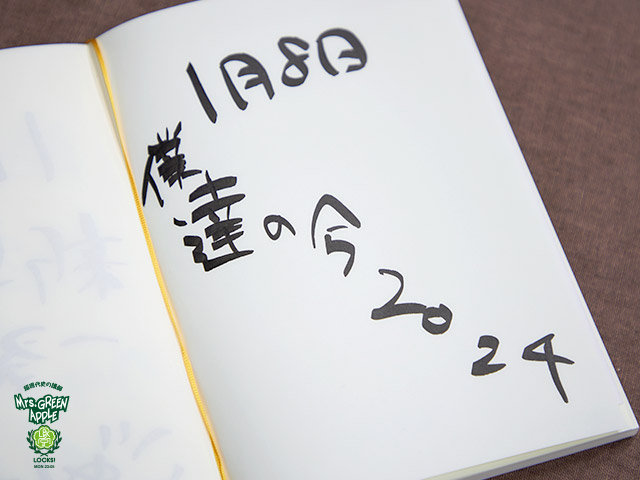 1月8日
僕達の今2024
Mrs. GREEN
APPLE
LOCKS!